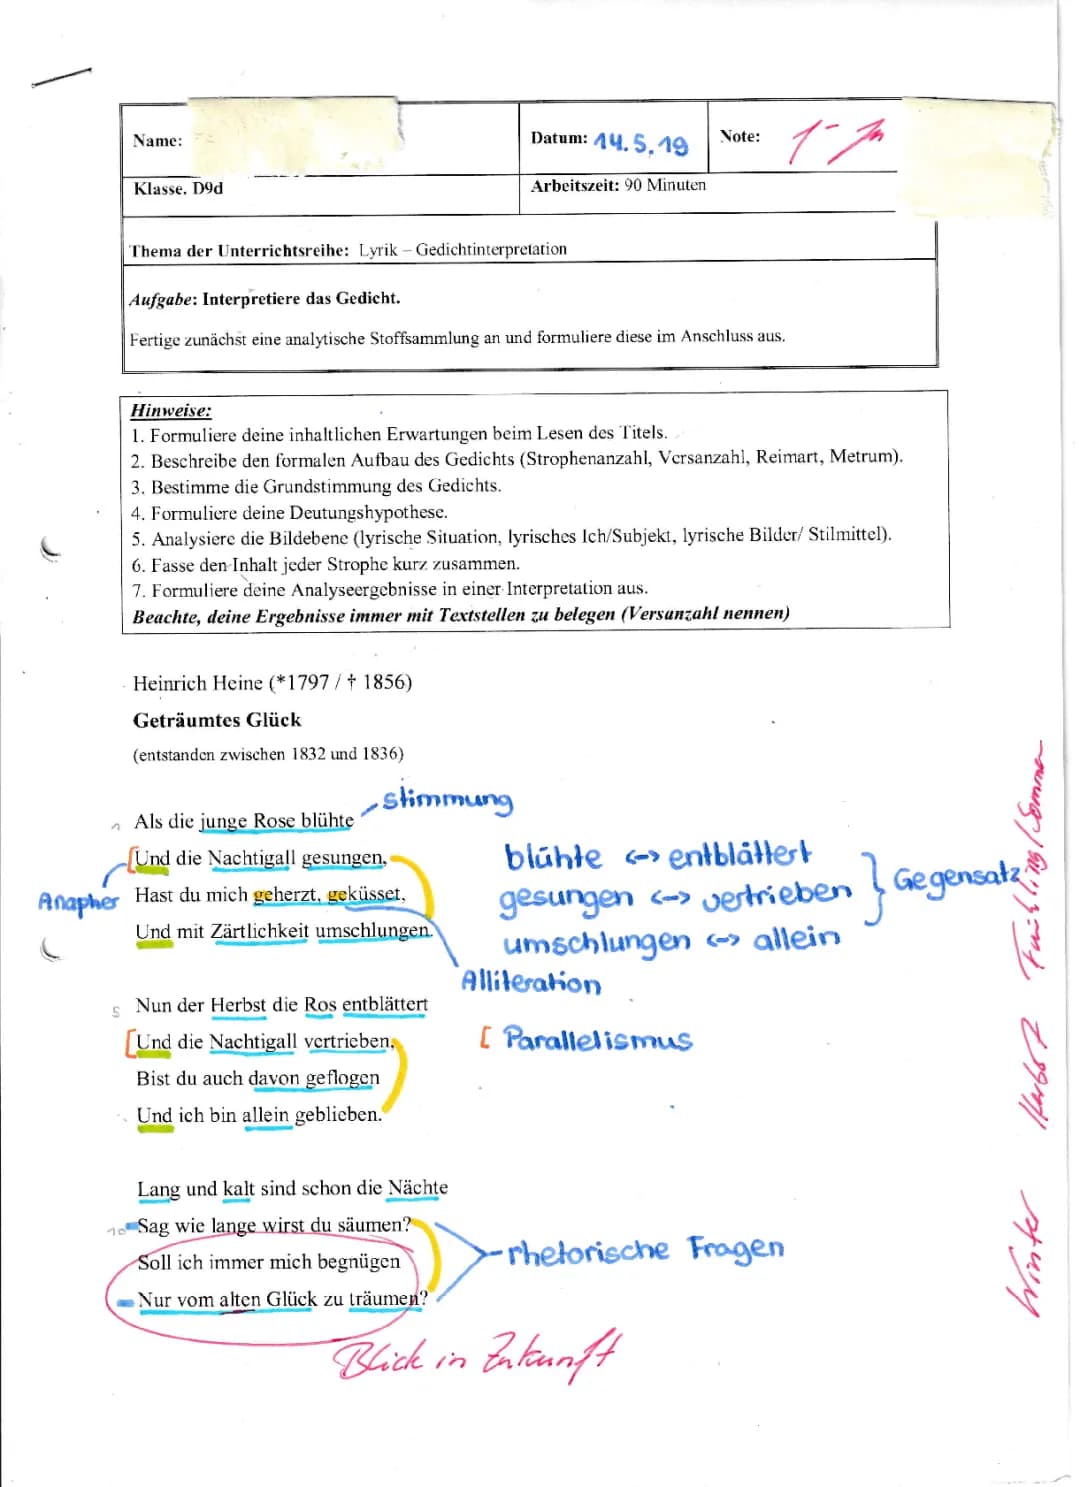 Name:
Datum: 14.5.19
Note: 1-
Klasse. D9d
Arbeitszeit: 90 Minuten
Thema der Unterrichtsreihe: Lyrik – Gedichtinterpretation
Aufgabe: Interpretiere das Gedicht.
Fertige zunächst eine analytische Stoffsammlung an und formuliere diese im Anschluss aus.
Hinweise:
1. Formuliere deine inhaltlichen Erwartungen beim Lesen des Titels.
2. Beschreibe den formalen Aufbau des Gedichts (Strophenanzahl, Versanzahl, Reimart, Metrum).
3. Bestimme die Grundstimmung des Gedichts.
4. Formuliere deine Deutungshypothese.
5. Analysiere die Bildebene (lyrische Situation, lyrisches Ich/Subjekt, lyrische Bilder/ Stilmittel).
6. Fasse den Inhalt jeder Strophe kurz zusammen.
7. Formuliere deine Analyseergebnisse in einer Interpretation aus.
Beachte, deine Ergebnisse immer mit Textstellen zu belegen (Versanzahl nennen)
Heinrich Heine (*1797 / † 1856)
Geträumtes Glück
(entstanden zwischen 1832 und 1836)
Stimmung
1 Als die junge Rose blühte
[Und die Nachtigall gesungen,
Anapher
Hast du mich geherzt, geküsset,
Und mit Zärtlichkeit umschlungen.
blühte <-> entblättert
gesungen <-> vertrieben } Gegensatz
umschlungen <-> allein
Frühling/Sommer
Alliteration
5 Nun der Herbst die Ros entblättert
[Und die Nachtigall vertrieben,
[ Parallelismus
Bist du auch davon geflogen
Und ich bin allein geblieben.
Herbst
Lang und kalt sind schon die Nächte
10 Sag wie lange wirst du säumen?
Soll ich immer mich begnügen
rhetorische Fragen
Nur vom alten Glück zu träumen?
Winter
Blick in Zukunft